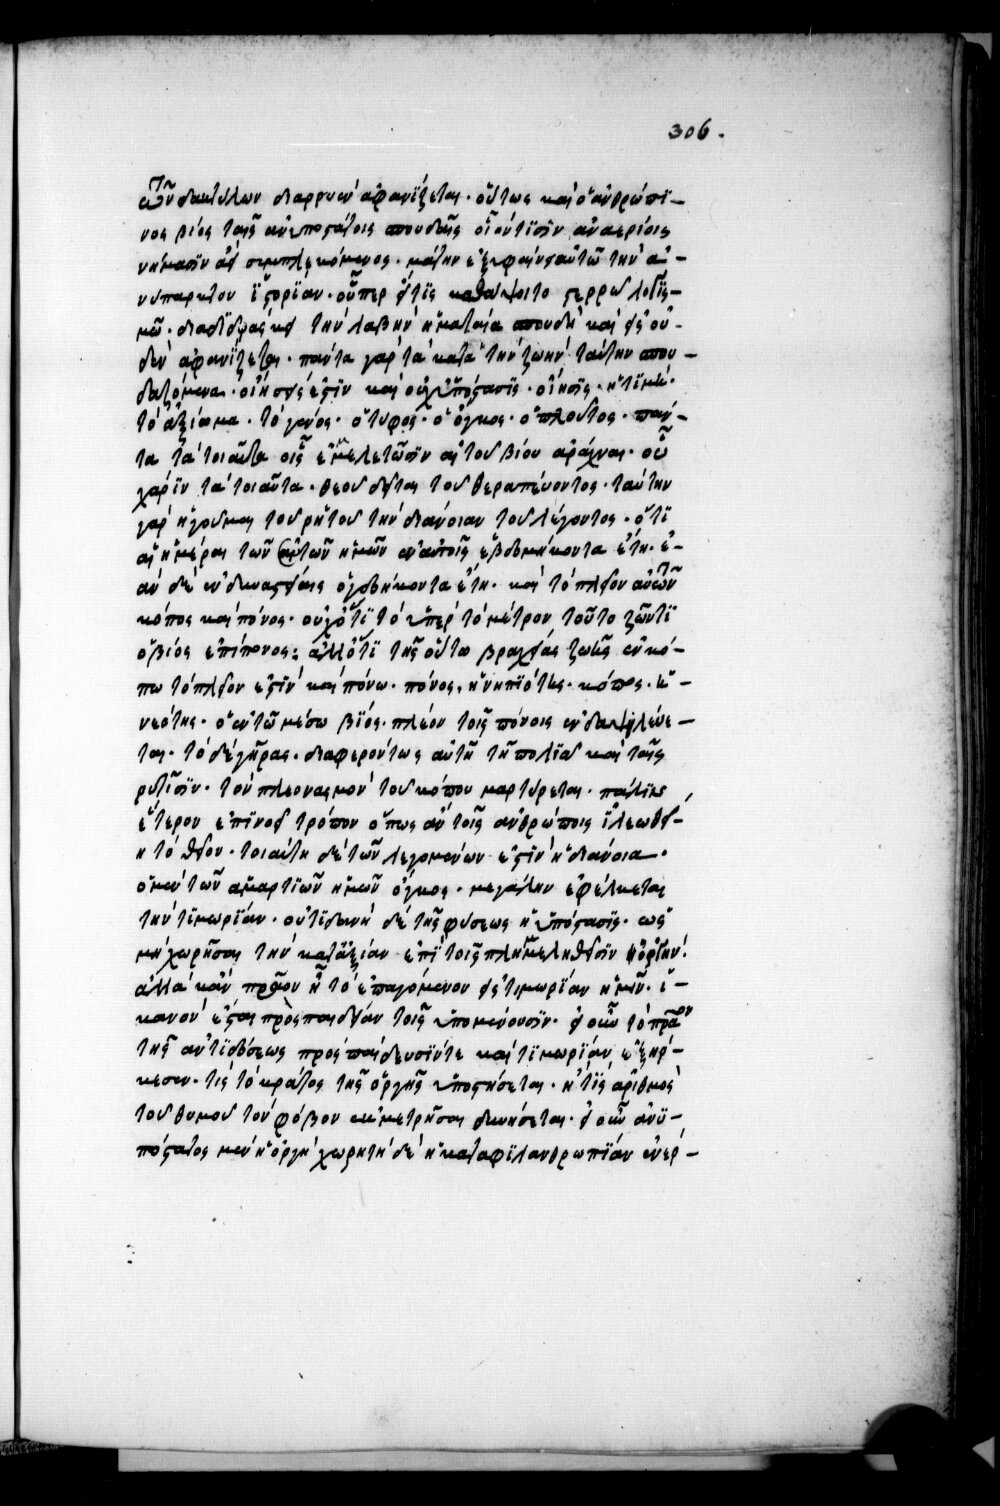 306.
τῶν δακτύλων διαρρυὲν ἀφανίζεται· οὕτως καὶ ὁ ἀνθρώπι-
νος βίος ταῖς ἀνυποστάτοις σπουδαῖς οἷόν τισὶν ἀναερίοις
νήμασιν ἀεὶ συμπλεκόμενος· μάτην ἐξυφαίνει αὐτῷ τὴν ἀ-
νύπαρκτον ἱστορίαν· οὗπερ εἴ τις καθάψοιτο στερρῷ λογισ-
μῷ· διαδιδράσκει τὴν λαβὴν ἡ ματαία σπουδὴ καὶ εἰς οὐ-
δὲν ἀφανίζεται· πάντα γὰρ τὰ κατὰ τὴν ζωὴν ταύτην σπου-
δαζόμενα· οἴησίς ἐστιν καὶ οὐχ ὑπόστασις· οἴησις· ἡ τιμή·
τὸ ἀξίωμα· τὸ γένος· ὁ τύφος· ὁ ὄγκος· ὁ πλοῦτος· πάν-
τα τὰ τοιαῦτα οἷς ἐμμελετῶσιν αἱ τοῦ βίου ἀράχναι· οὗ
χάριν τὰ τοιαῦτα· θεοῦ δεῖται τοῦ θεραπεύοντος· ταύτην
γὰρ ἡγοῦμαι τοῦ ῥητοῦ τὴν διάνοιαν τοῦ λέγοντος· ὅτι
αἱ ἡμέραι τῶν ἐτῶν ἡμῶν ἐν αὐτοῖς ἑβδομήκοντα ἔτη· ἐ-
ὰν δὲ ἐν δυναστείαις ὀγδοήκοντα ἔτη· καὶ τὸ πλεῖον αὐτῶν
κόπος καὶ πόνος· οὐχ ὅτι τὸ ὑπὲρ τὸ μέτρον τοῦτο ζῶντι
ὁ βίος ἐπίπονος· ἀλλ' ὅτι τῆς οὕτω βραχείας ζωῆς ἐν κό-
πῳ τὸ πλεῖον ἐστὶν καὶ πόνῳ· πόνος, ἡ νηπιότης· κόπος· ἡ
νεότης· ὁ ἐν τῷ μέσῳ βίος· πλέον τοῖς πόνοις ἐνδαψιλεύε-
ται· τὸ δὲ γῆρας· διαφερόντως αὐτῇ τῇ πολιᾷ καὶ ταῖς
ῥυτίσιν· τὸν πλεονασμὸν τοῦ κόπου μαρτύρεται· πάλιν
ἕτερον ἐπινοεῖ τρόπον ὅπως ἂν τοῖς ἀνθρώποις ἵλεων εἴ-
η τὸ θεῖον· τοιαύτη δὲ τῶν λεγομένων ἐστὶν ἡ διάνοια·
ὁ μὲν τῶν ἁμαρτιῶν ἡμῶν ὄγκος· μεγάλην ἐφέλκεται
τὴν τιμωρίαν· οὐτιδανὴ δὲ τῆς φύσεως ἡ ὑπόστασις· ὡς
μὴ χωρῆσαι τὴν κατ' ἀξίαν ἐπὶ τοῖς πλημμεληθεῖσιν ὀργήν·
ἀλλὰ κἂν πρᾷον ᾖ τὸ ἐπαγόμενον εἰς τιμωρίαν ἡμῖν· ἱ-
κανὸν ἔσται πρὸς παιδείαν τοῖς ὑπομένουσιν· εἰ οὖν τὸ πρᾷον
τῆς ἀντιδόσεως πρὸς παίδευσίν τε καὶ τιμωρίαν ἐξήρ-
κεσεν· τίς τὸ κράτος τῆς ὀργῆς ὑποστήσεται· ἢ τίς ἀριθμὸς
τοῦ θυμοῦ τὸν φόβον ἐκμετρῆσαι δυνήσεται· εἰ οὖν ἀνυ-
πόστατος μὲν ἡ ὀργὴ χωρητὴ δὲ ἡ κατὰ φιλανθρωπίαν ἐνέρ-